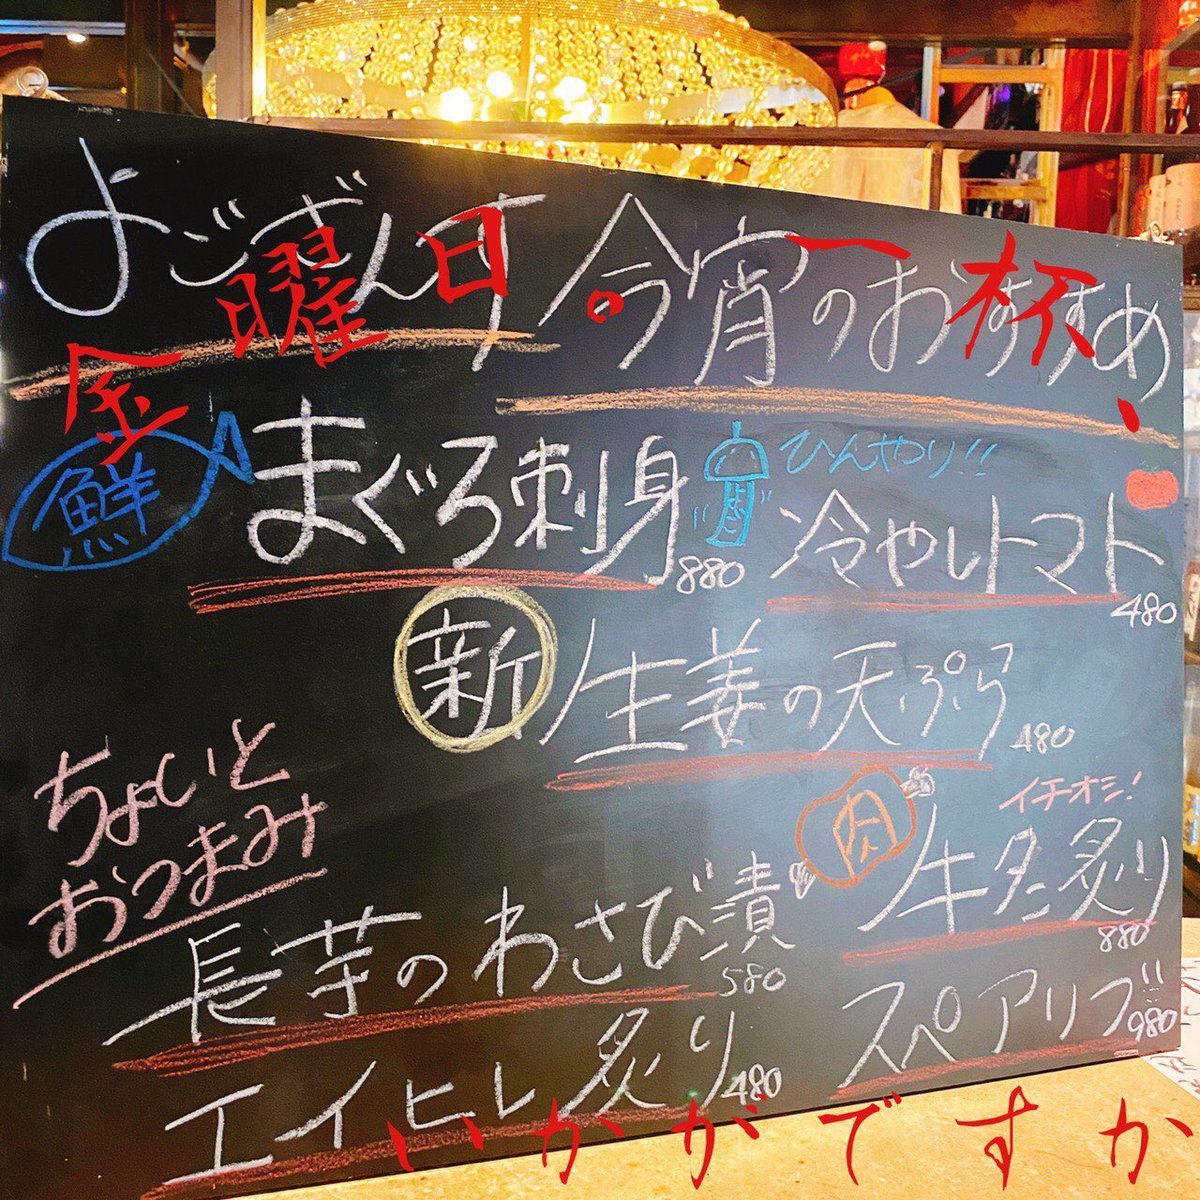 よござんす 今宵のおすすめ
金曜日。一杯、
鮮 まぐろ刺身 880
ひんやり!!
冷やしトマト 480
新生姜の天ぷら 480
ちょいと
おつまみ
長芋のわさび漬 580
エイヒレ炙り 480
イチオシ!
肉 牛タン炙り 880
スペアリブ 980
いかがですか